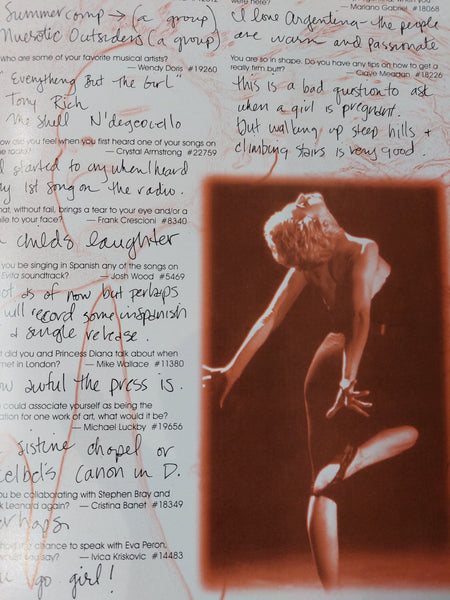 Summercamp → (a group)
Neurotic Outsiders (a group)
who are some of your favorite musical artists?
— Wendy Doris #19260
"Everything But The Girl"
Tony Rich
Me Shell N'degeocello
did you feel when you first heard one of your songs on
radio? — Crystal Armstrong #22759
started to cry when I heard
my 1st song on the radio.
hat, without fail, brings a tear to your eye and/or a
ile to your face? — Frank Crescioni #8340
childs laughter
you be singing in Spanish any of the songs on
Evita soundtrack? — Josh Wood #5469
not as of now but perhaps
will record some in spanish
& single release.
t did you and Princess Diana talk about when
met in London? — Mike Wallace #11380
ow awful the press is.
could associate yourself as being the
ration for one work of art, what would it be?
— Michael Luckby #19656
sistine chapel or
celbel's canon in D.
you be collaborating with Stephen Bray and
k Leonard again? — Cristina Banet #18349
erhaps
chance to speak with Eva Peron,
you say? — Ivica Kriskovic #14483
go girl!
were here?
— Mariano Gabriel #18068
I love Argentina - the people
are warm and passionate
You are so in shape. Do you have any tips on how to get a
really firm butt? — Clave Meagan #18226
this is a bad question to ask
when a girl is pregnant.
but walking up steep hills +
climbing stairs is very good